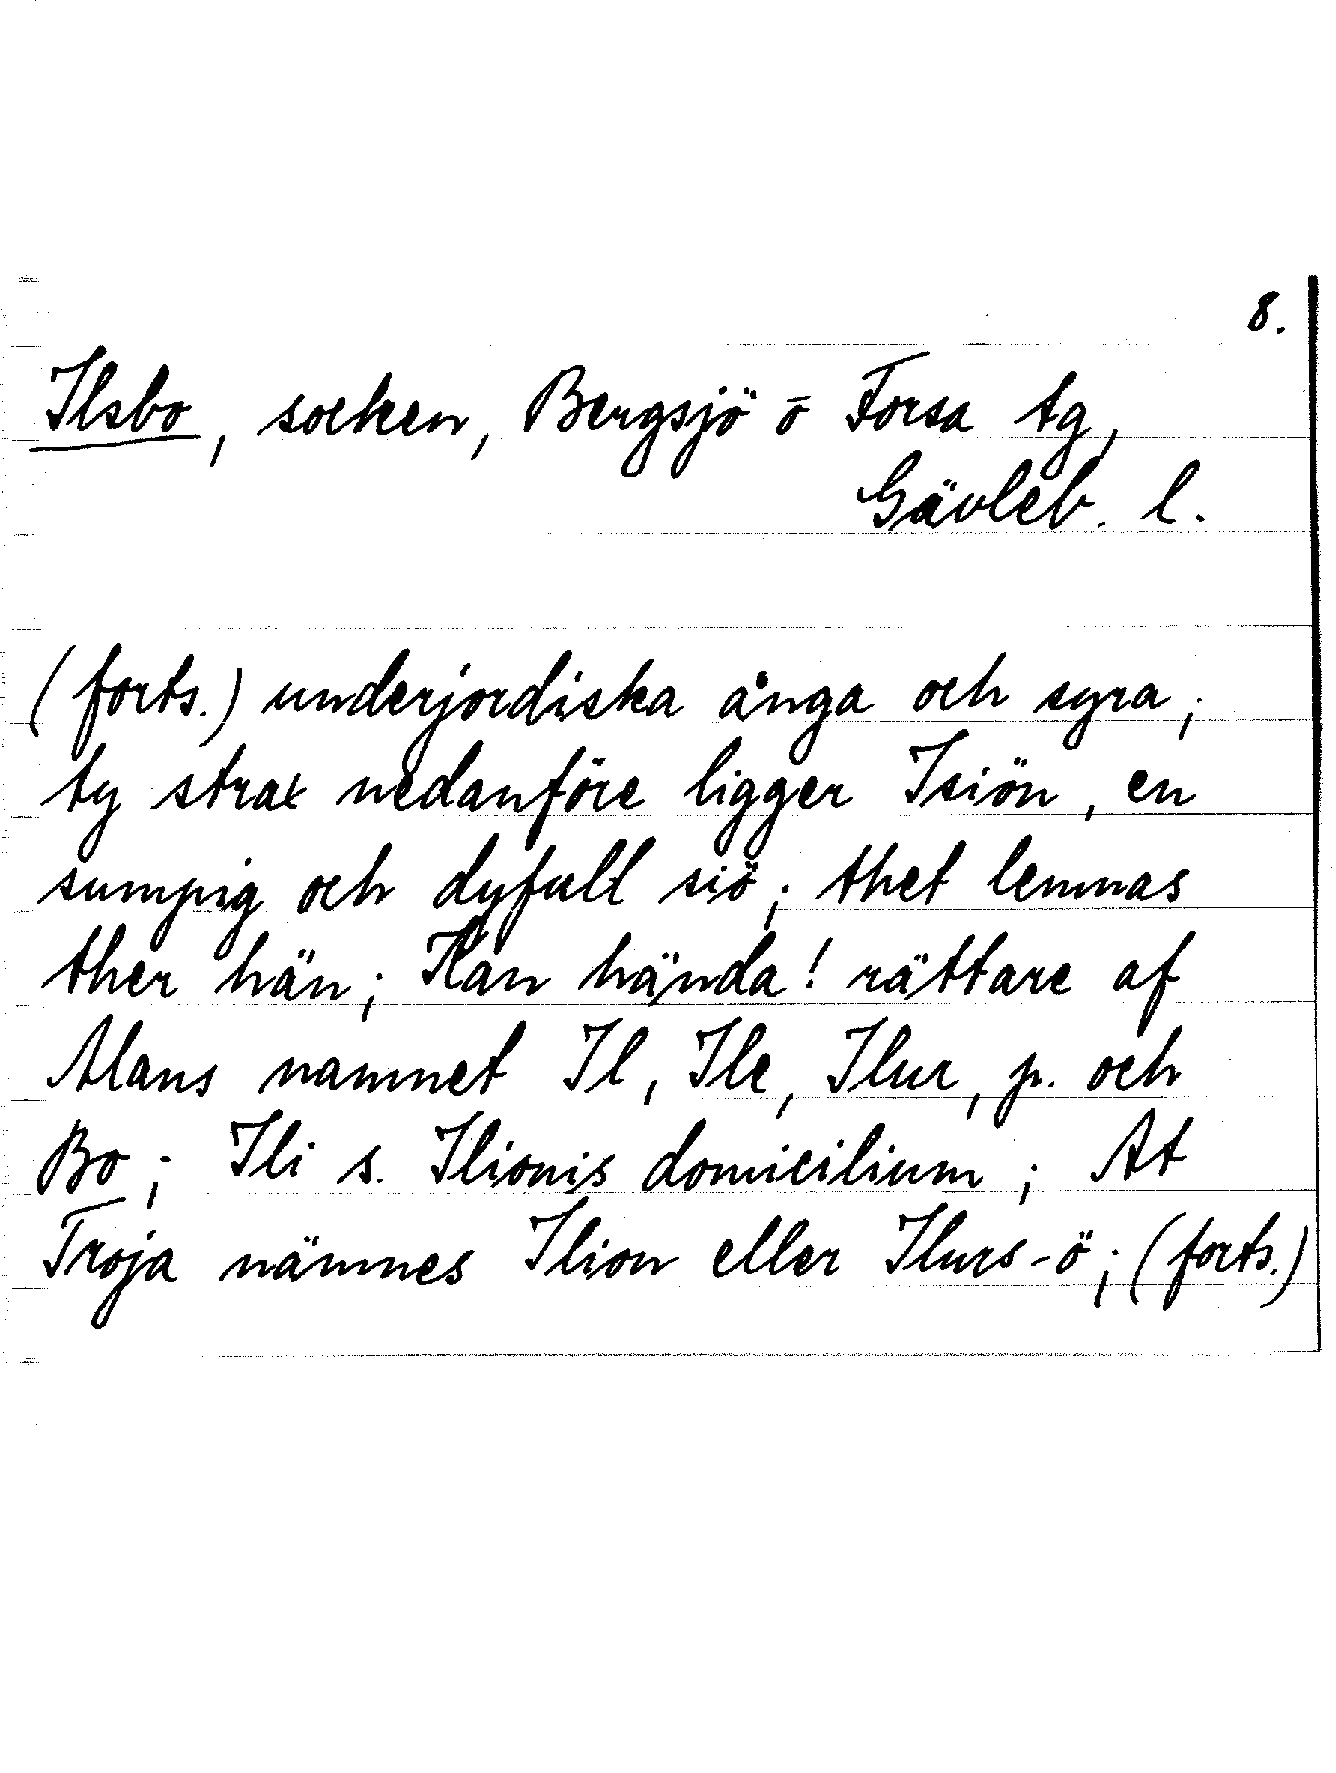 8.
Ilsbo, socken, Bergsjö o Forsa tg,
Gävleb. l.
(forts.) underjordiska ånga och syra;
ty strax nedanföre ligger Isiön, en
sumpig och dyfull siö; thet lemnas
ther hän; Kan hända! rättare af
Mans namnet Il, Ile, Ilur, p. och
Bo; Ili s. Ilionis domicilium; At
Troja nämnes Ilion eller Ilurs-ö; (forts.)